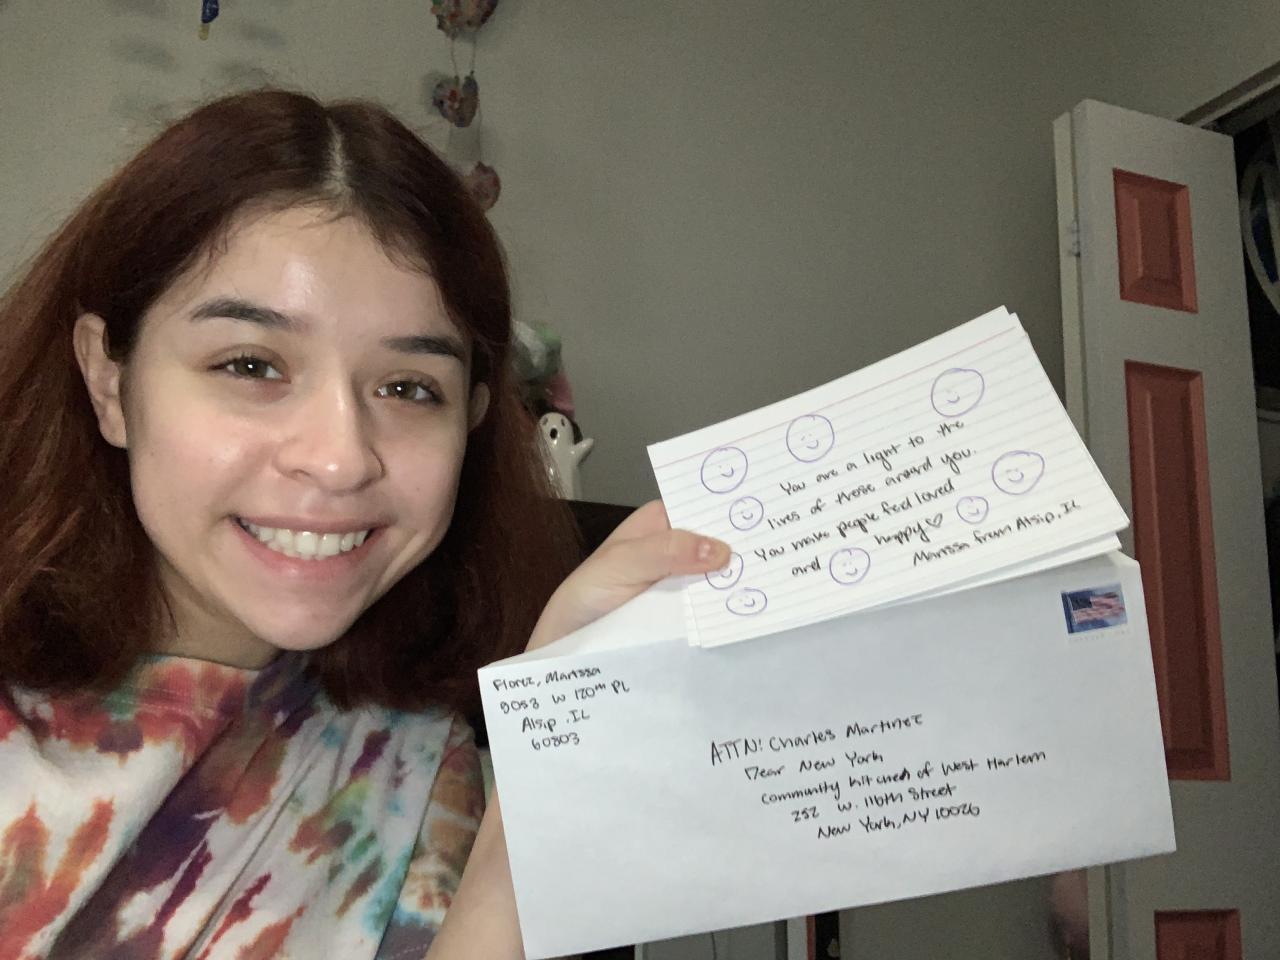 You are a light to the
lives of those around you.
You make people feel loved
and happy♡
Marissa from Alsip, IL
Florez, Marissa
8053 W 120th PL
Alsip, IL
60803
ATTN: Charles Martinez
Dear New York
Community Kitchen of West Harlem
252 W. 116th Street
New York, NY 10026